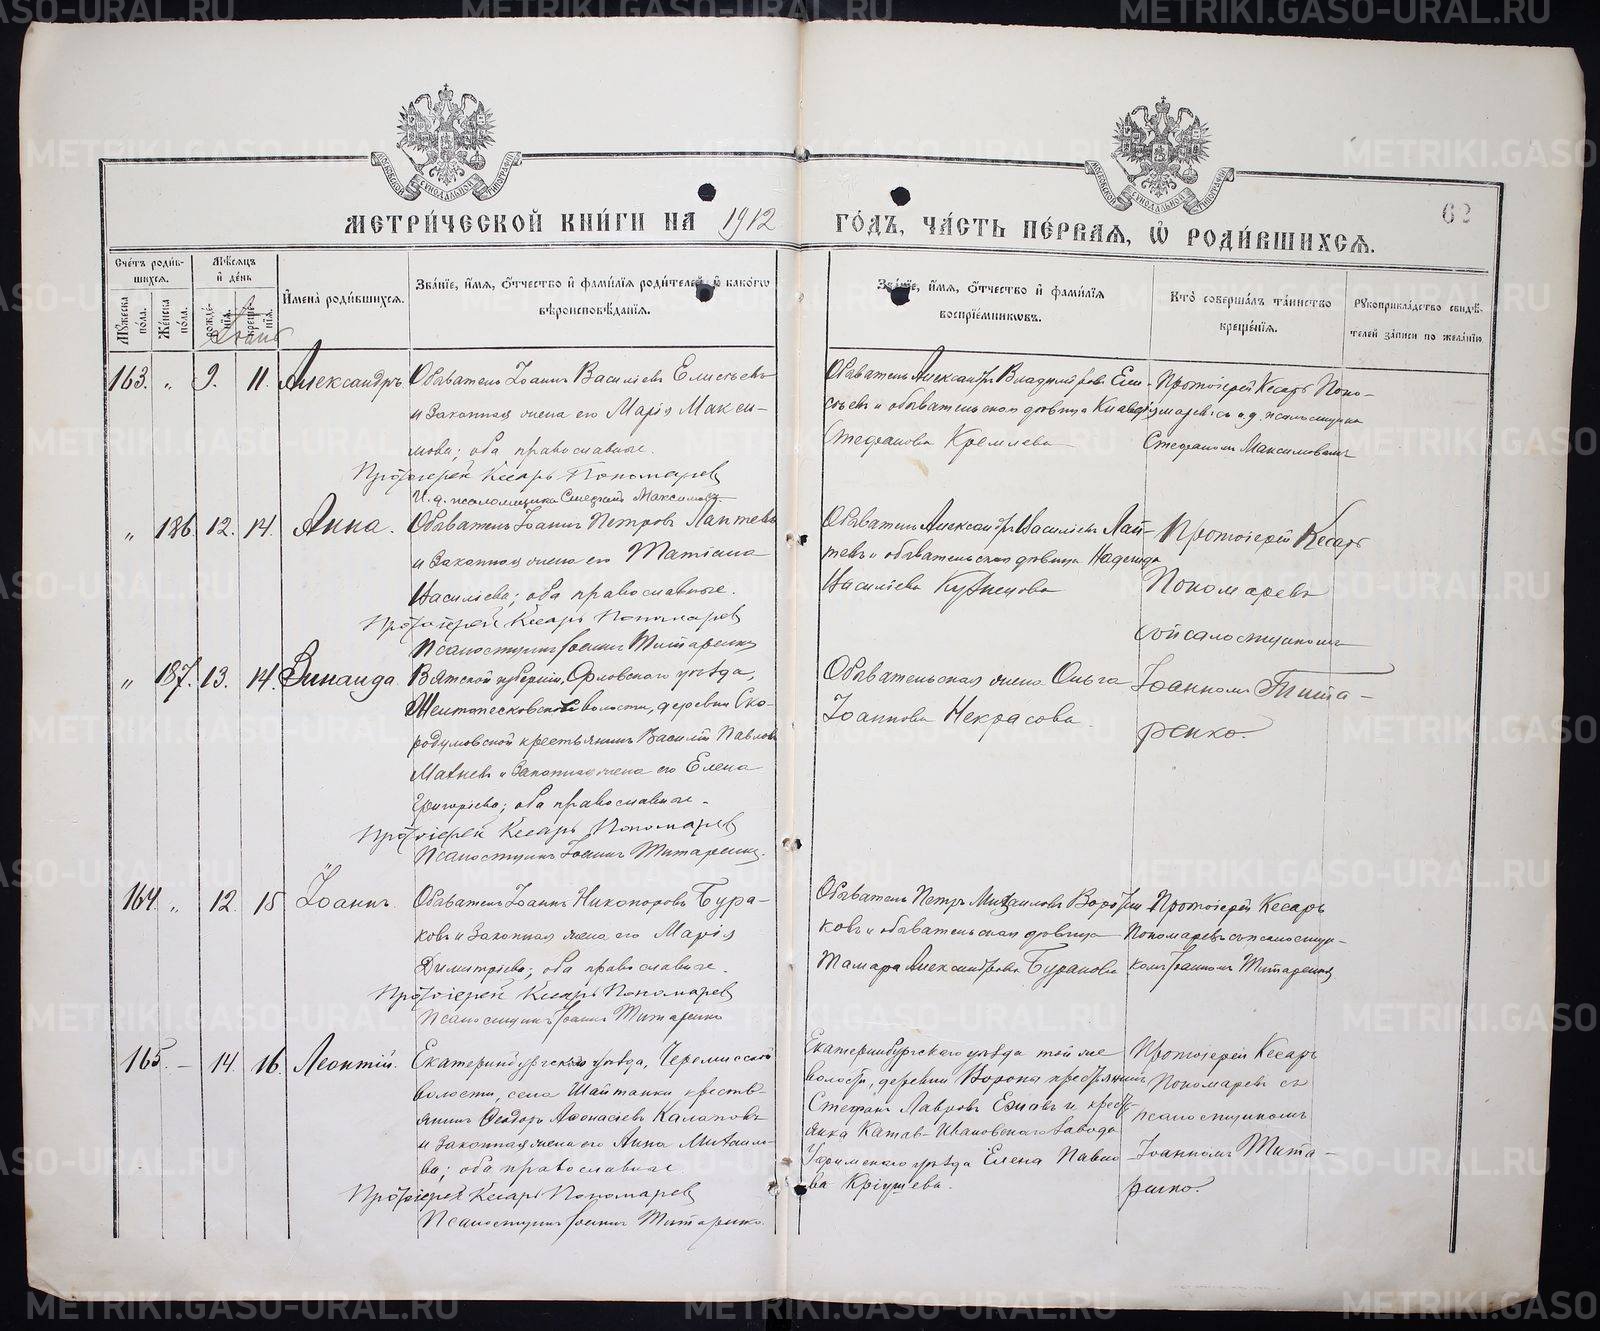 МЕТРИ́ЧЕСКОЙ КНИ́ГИ НА 1912 ГО́ДЪ, ЧА́СТЬ ПЕ́РВАЯ, Ѡ РОДИ́ВШИХСЯ.
62
Сче́тъ роди́в-
шихся.
Мꙋ́жеска по́ла.
Же́нска по́ла.
Мѣ́сяцъ
и҆ де́нь
рожде́-
нїя.
креще́-
нїя.
И҆мена̀ роди́вшихся.
Зва́нїе, и҆́мя, о҆́тчество и҆ фами́лїя роди́телей, и҆ како́гѡ
вѣроисповѣ́данїя.
Зва́нїе, и҆́мя, о҆́тчество и҆ фами́лїя
воспрїе́мникѡвъ.
Кто̀ соверша́лъ та́инство
креще́нїя.
Рꙋкоприкла́дство свидѣ́-
телей за́писи по жела́нїю.
163. „ 9. 11. Александръ.
Обыватель Іоаннъ Василіевъ Елисѣевъ
и законная жена его Марія Макси-
мова; оба православные.
Протоіерей Кесарь Пономаревъ
И. д. псаломщика Стефанъ Максимовъ.
Обыватель Александръ Владиміровъ Ели-
сѣевъ и обывательская дѣвица Клавдія
Стефанова Кремлева
Протоіерей Кесарь Поно-
маревъ съ и. д. псаломщика
Стефаномъ Максимовымъ
„ 186. 12. 14. Анна.
Обыватель Іоаннъ Петровъ Лаптевъ
и законная жена его Татіана
Василіева; оба православные.
Протоіерей Кесарь Пономаревъ
Псаломщикъ Іоаннъ Титаренко
Обыватель Александръ Василіевъ Лап-
тевъ и обывательская дѣвица Надежда
Василіева Кузнецова
Протоіерей Кесарь
Пономаревъ
съ псаломщикомъ
Іоанномъ Тита-
ренко.
„ 187. 13. 14. Зинаида.
Вятской губерніи, Орловскаго уѣзда,
деревни Ско-
родумовской крестьянинъ Василій Павловъ
и законная жена его Елена
Григоріева; оба православные.
Протоіерей Кесарь Пономаревъ
Псаломщикъ Іоаннъ Титаренко.
Обывательская жена Ольга
Іоаннова Некрасова.
164. „ 12. 15 Іоаннъ.
Обыватель Іоаннъ Никоноровъ Бура-
ковъ и законная жена его Марія
Димитріева; оба православные.
Протоіерей Кесарь Пономаревъ
Псаломщикъ Іоаннъ Титаренко
Обыватель Петръ Михаиловъ
ковъ и обывательская дѣвица
Тамара Александрова Буракова
Протоіерей Кесарь
Пономаревъ съ псаломщи-
комъ Іоанномъ Титаренко
165. – 14. 16. Леонтій.
Екатеринбургскаго уѣзда, Черемисской
волости, села Шайтанки кресть-
янинъ Ѳеодоръ Аѳонасіевъ Калаповъ
и законная жена его Анна Михаило-
ва; оба православные.
Протоіерей Кесарь Пономаревъ
Псаломщикъ Іоаннъ Титаренко.
Екатеринбургскаго уѣзда той же
волости, деревни крестьянинъ
Стефанъ Лавровъ и кресть-
янка Катав-Ивановскаго завода
Уфимскаго уѣзда Елена Павло-
ва Кріушева.
Протоіерей Кесарь
Пономаревъ съ
псаломщикомъ
Іоанномъ Тита-
ренко.
METRIKI.GASO-URAL.RU